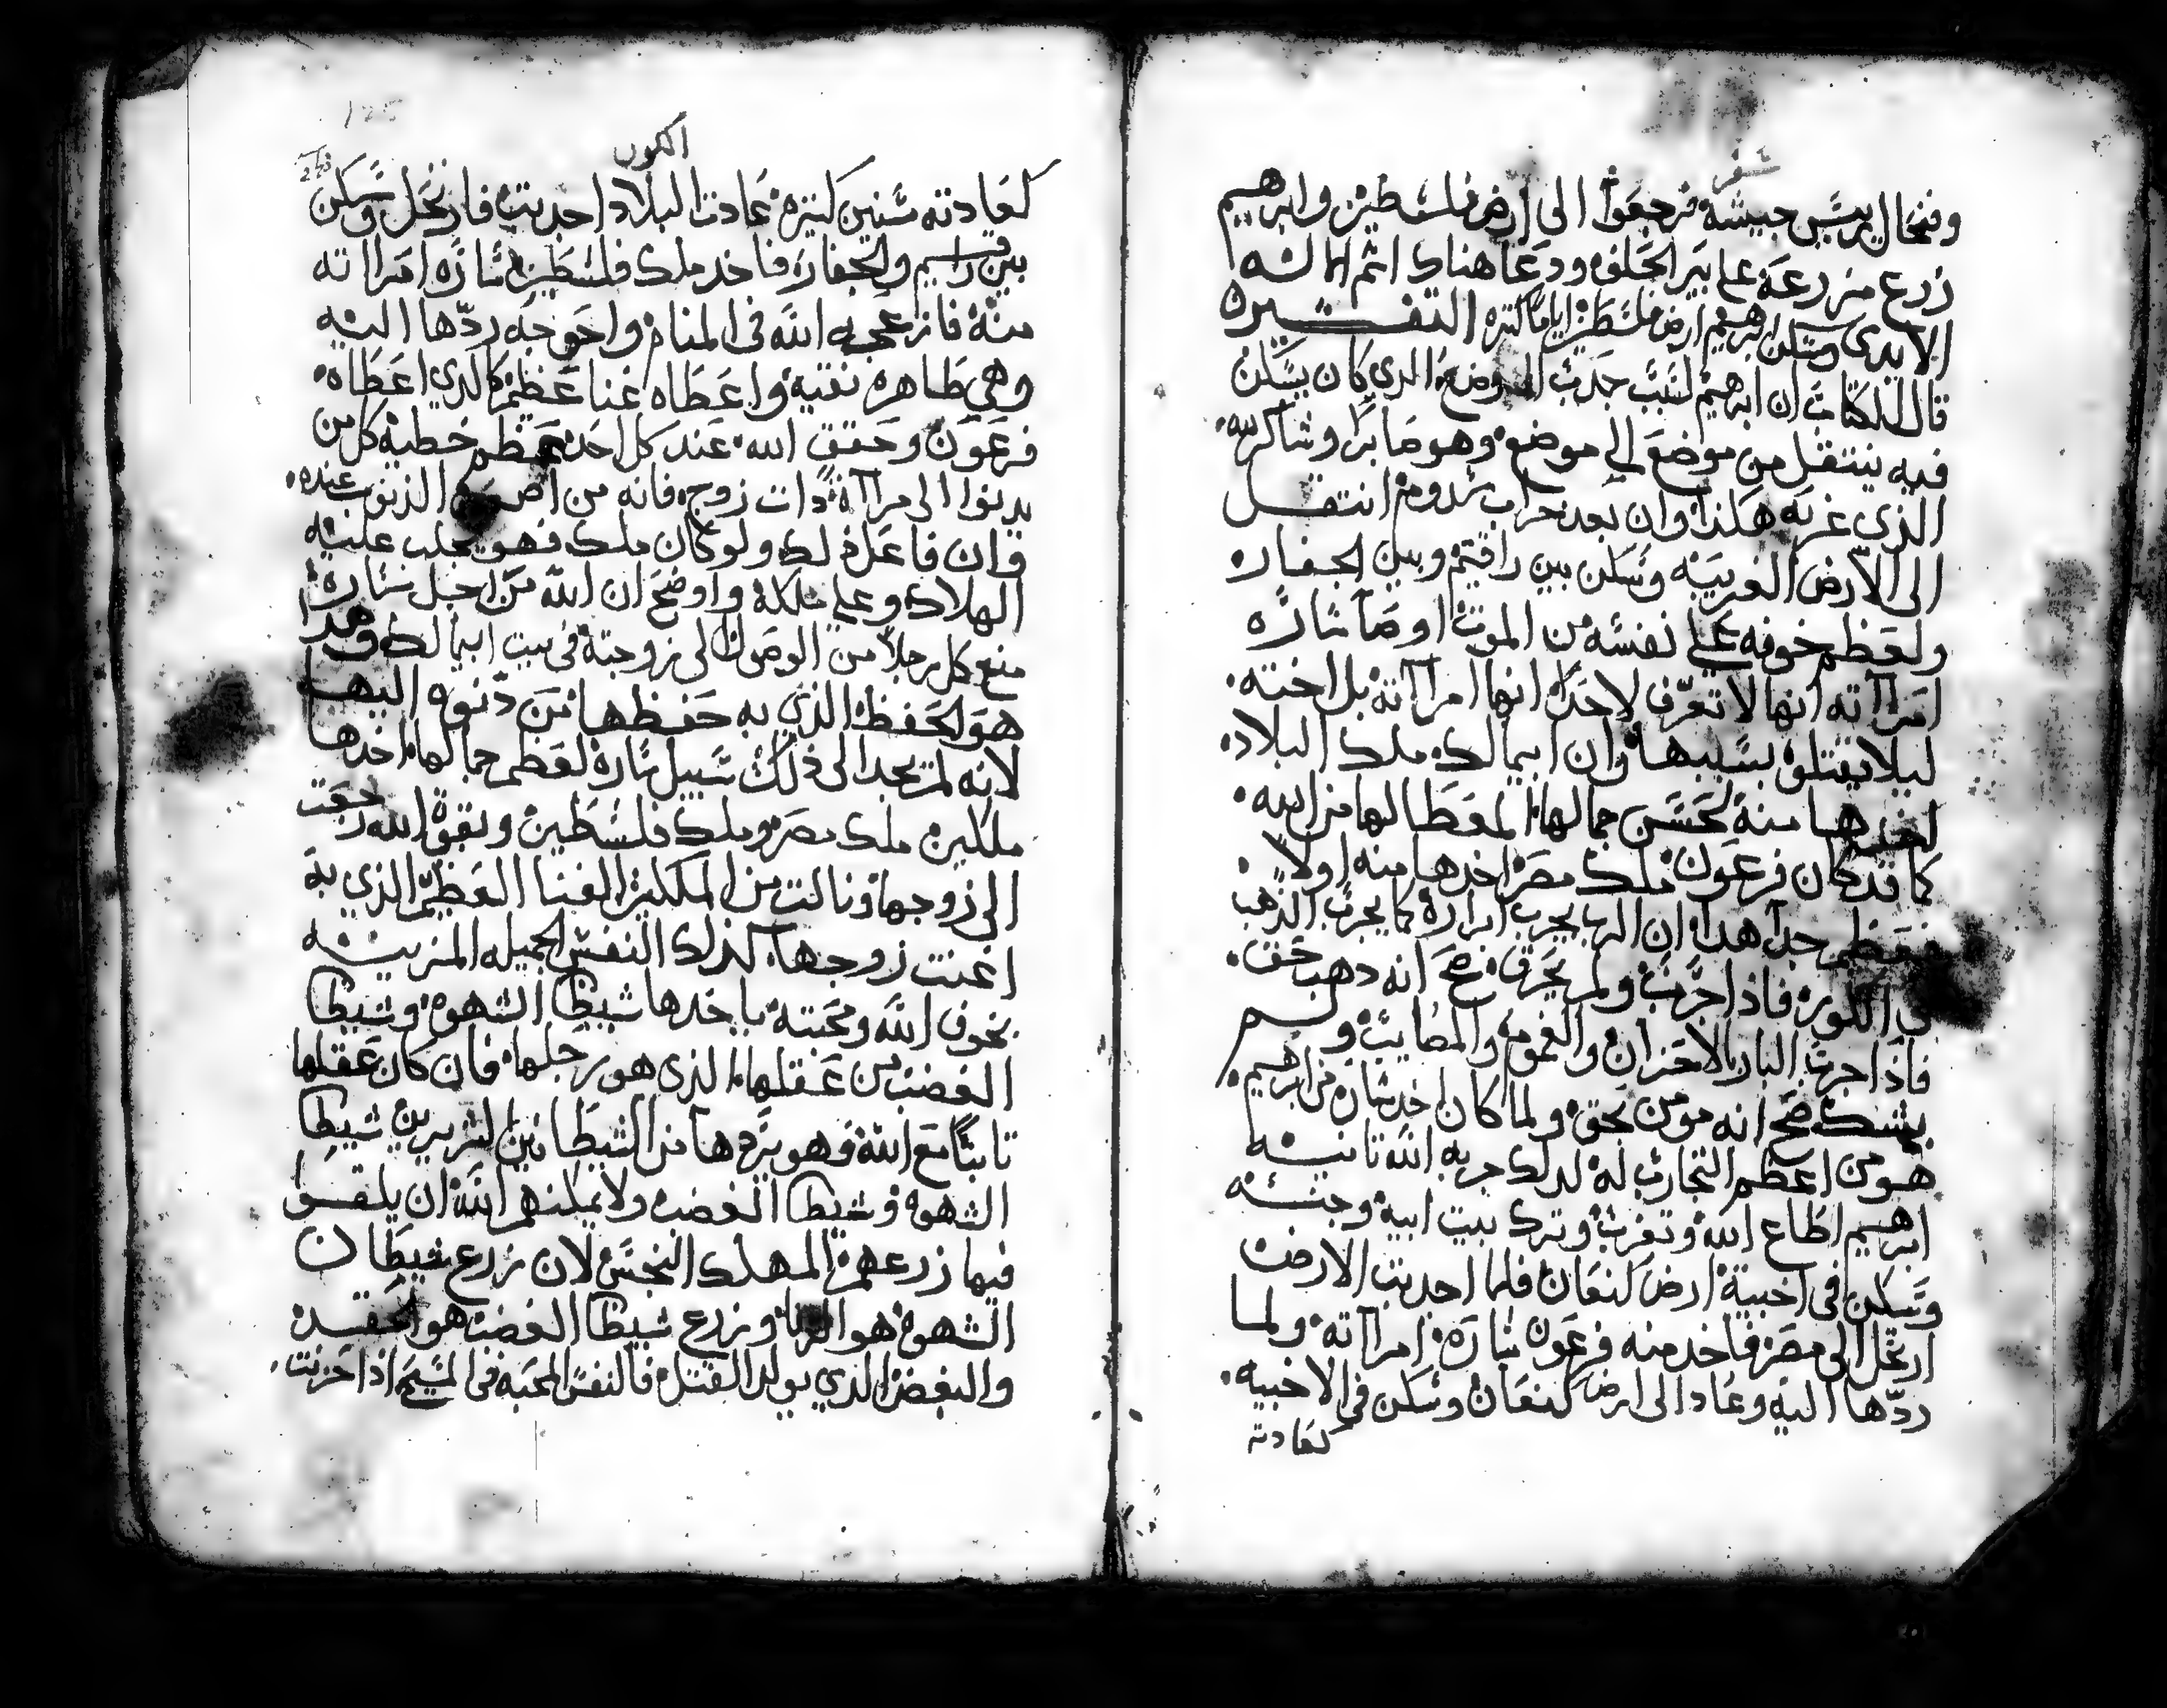 سفر
وفنحال ريىس جيشه فرجعوا الى ارض فلسطين وابرهيم
زرع مزرعه على بير الحلفه ودعا هناك اسم الاله
الابدى وسكن ابرهيم ارض فلسطين اياما كتيره التفسيره
قال الكتاب ان ابرهيم لسبب جدب الموضع الدي كان يسكن
فيه ينتقل من موضع الى موضع وهو صابرا وشاكر لله
الذي غربه هكذا وان بعد خراب سدوم انتقل
الى الارض الغربيه وسكن بين راقيم وبين الجفاره
ولعظم خوفه على نفسه من الموت اوصا ساره
امراآته انها لا تعرف لاحدا انها امراآته بل اخته
ليلا يقتلوه بسببها وان ابيمالك ملك البلاد
اخدها منه لحسن جمالها المعطا لها من الله
كما قد كان فرعون ملك مصر اخدها منه اولا
فعظم جدا هدا ان الرب يجرب ابراره كما يجرب الذهب
في الكوره فاذا جرب ولم يحرق صح انه دهب حق
فاذا جرب البار بالاحزان والغموم والمصايب و لم
يشك صح انه مومن بحق ولما كان اخد ساره من ابرهيم
هو من اعظم التجارب له لدلك جربه الله تانيه
ابرهيم اطاع الله وتغرب وترك بيت ابيه وجنسه
وسكن في اخبية ارض كنعان فلما اجدبت الارض
ارتحل الى مصر فاخد منه فرعون ساره امراآته ولما
ردّها اليه وعاد الى ارض كنعان وسكن في الاخبيه
كعادته
الكون
كعادته سنين كتيره عادت البلاد اجدبت فارتحل وسكن
بين راقيم والجفاره فاخد ملك فلسطين ساره امراآته
منه فازعجه الله في المنام واحوجه ردّها اليه
وهي طاهره نقيه واعطاه غنا عظيم كالدي اعطاه
فرعون وحقق الله عند كل احد عظم خطية كل من
يدنوا الى مراآة دات زوج فانه من اصعب الذنوب عنده
وان فاعل ذلك ولو كان ملك فهو يجلب عليه
الهلاك وعلى مملكته واوضح ان الله من اجل ساره
منع كل رجلا من الوصول الى زوجته في بيت ابيمالك وهدا
هو الحفظ الذي به حفظها من دنوه اليها
لانه لم يجد الى ذلك سبيل ساره لعظم جمالها اخدها
ملكين ملك مصر وملك فلسطين وبقوة الله رجعت
الى زوجها ونالت من الملكين الغنا العظيم الذي به
اغنت زوجها كذلك النفس الجميله المزينه
بخوف الله ومحبته ياخدها شيطا الشهوه وشيطا
الغضب من عقلها الذي هو رجلها فان كان عقلها
تابتا مع الله فهو يردها من الشيطانين الشريرين شيطا
الشهوه وشيطا الغضب ولا يمكنهم الله ان يلقوا
فيها زرعهم المهلك النجس لان زرع شيطان
الشهوه هو الزنا وزرع شيطا الغضب هو الحقد
والبغض الذي يولد القتل فالنفس المحبه في المسيح اذا حزنت